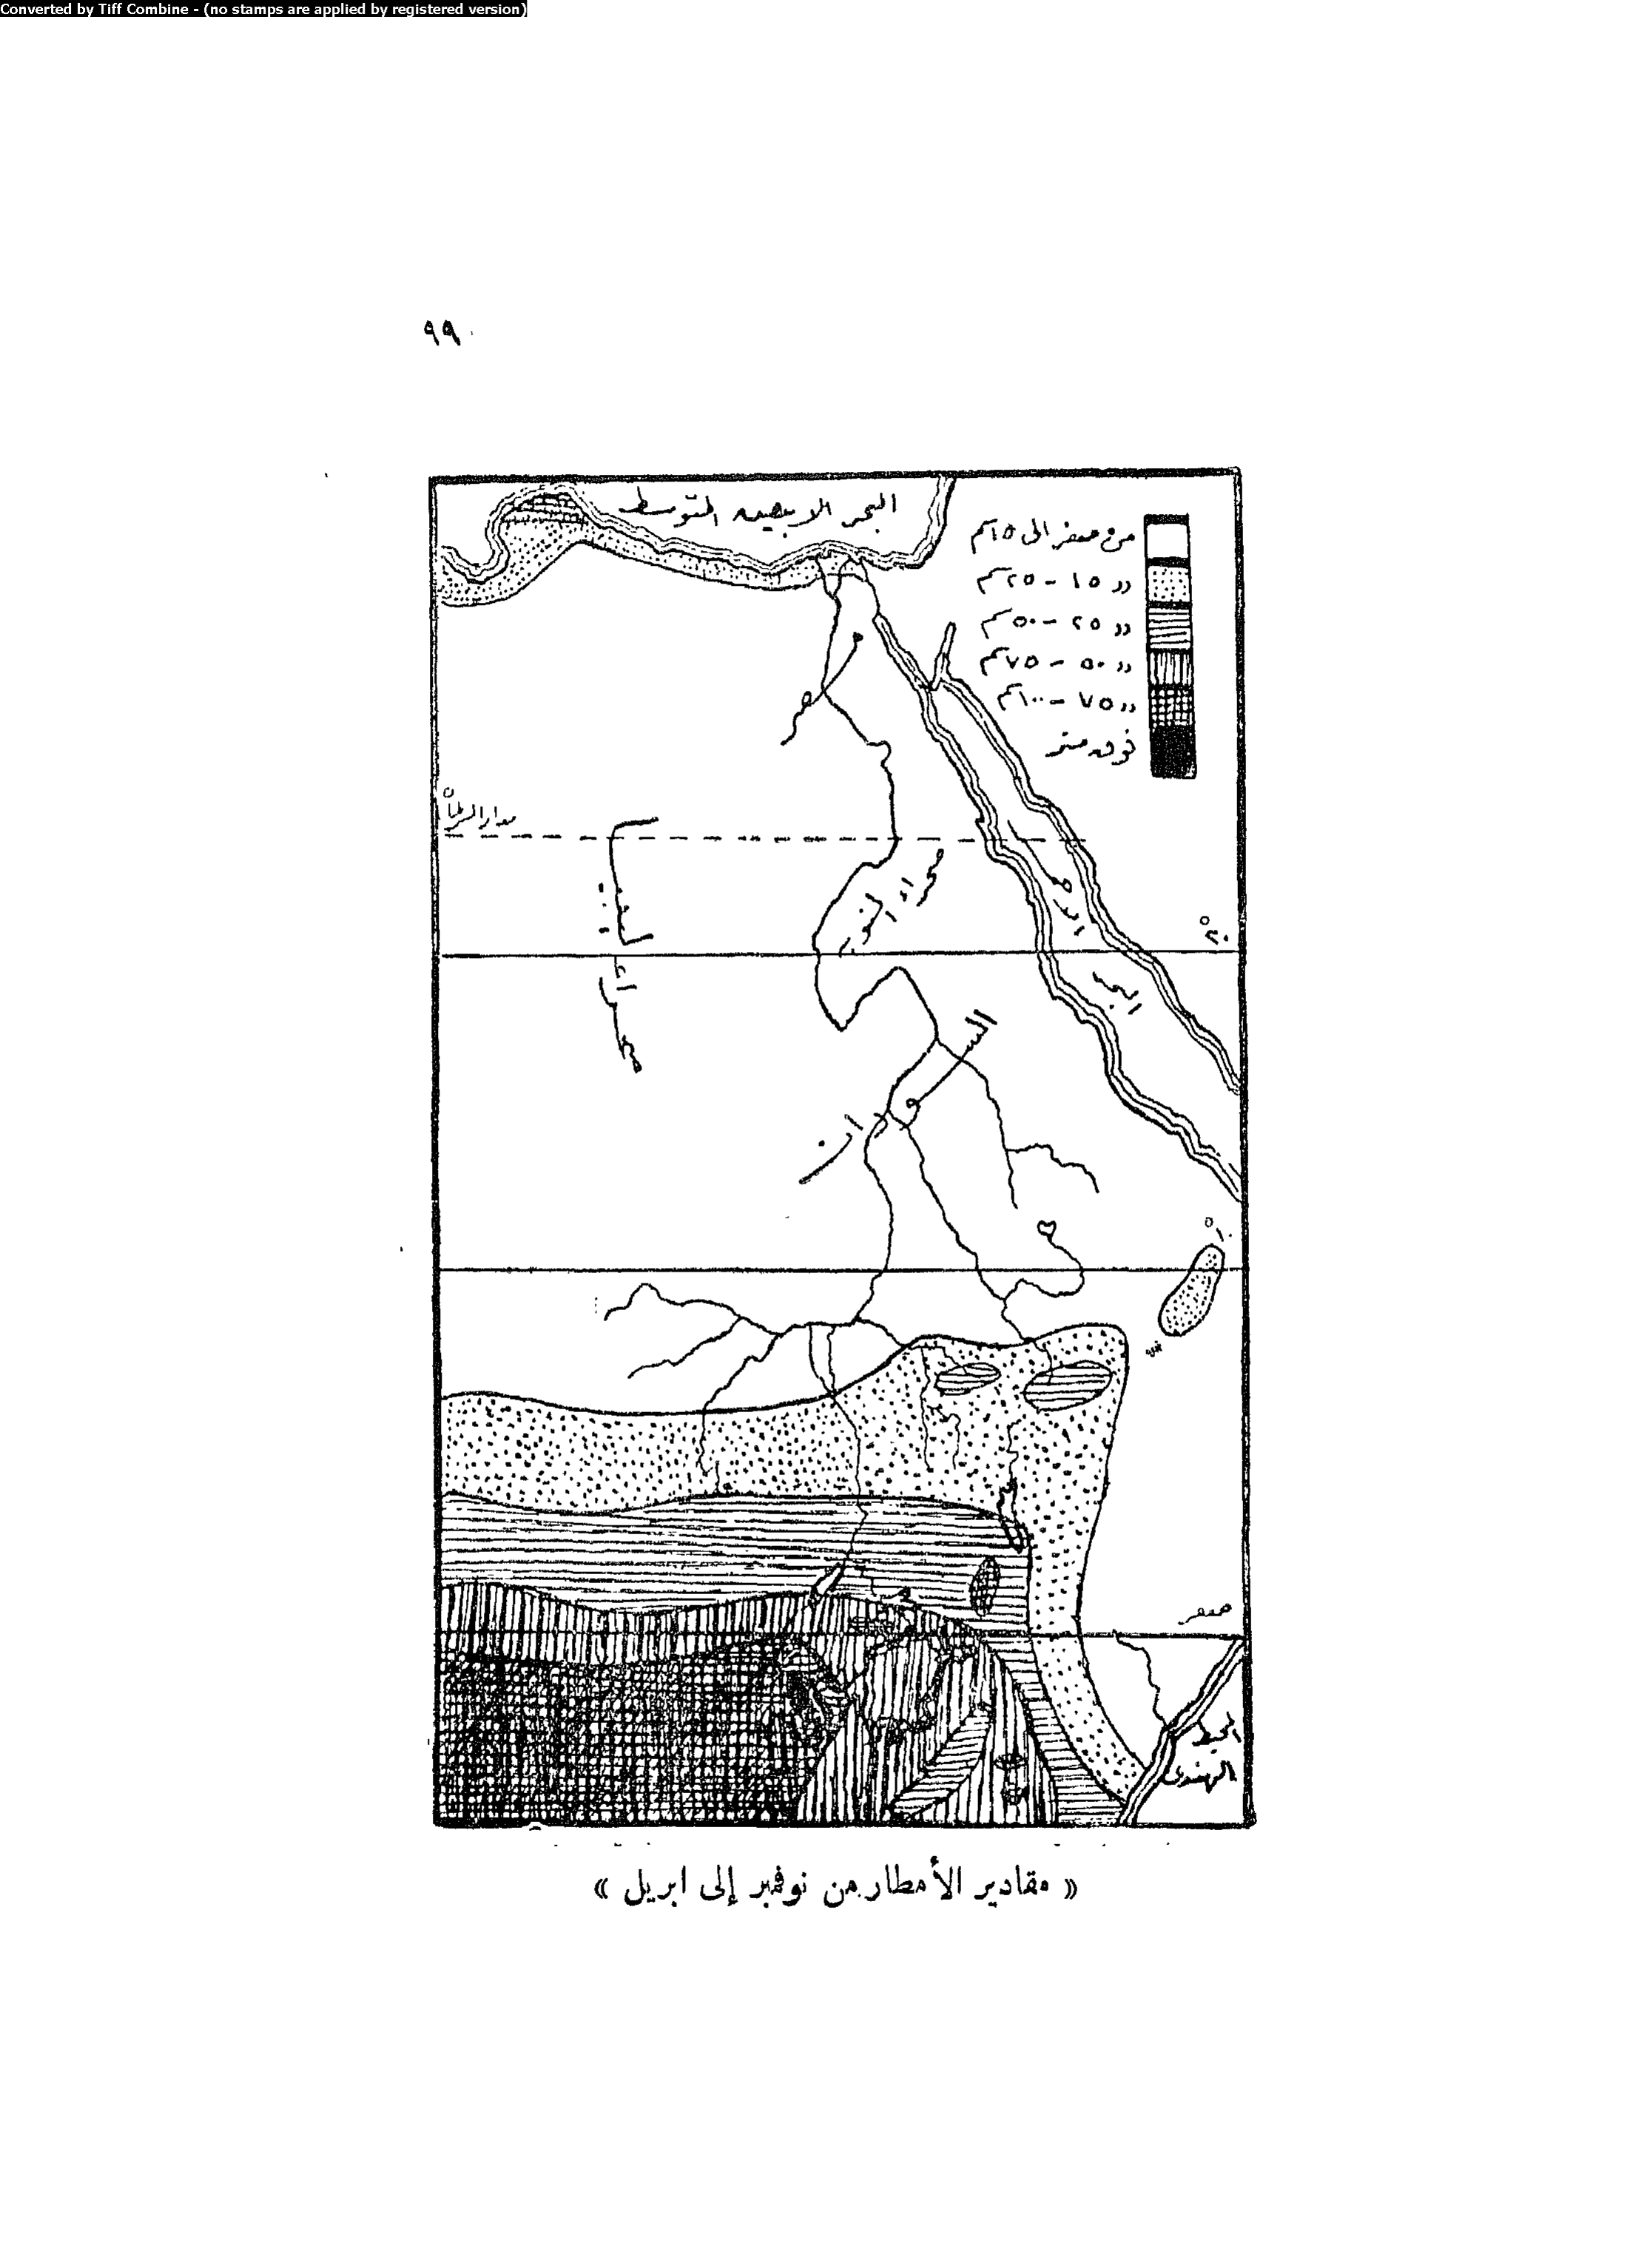 Converted by Tiff Combine - (no stamps are applied by registered version)
٩٩
البحر الأبيض المتوسط
من صفر الى ١٥سم
« ١٥ - ٢٥سم
« ٢٥ - ٥٠سم
« ٥٠ - ٧٥سم
« ٧٥ - ١٠٠سم
فوق متر
مصر
مدار السرطان
صحراء ليبيا
صحراء النوبة
البحر الاحمر
٢٠°
السودان
١٠°
صفر
المحيط
الهندى
« مقادير الأمطار من نوفمبر إلى ابريل »